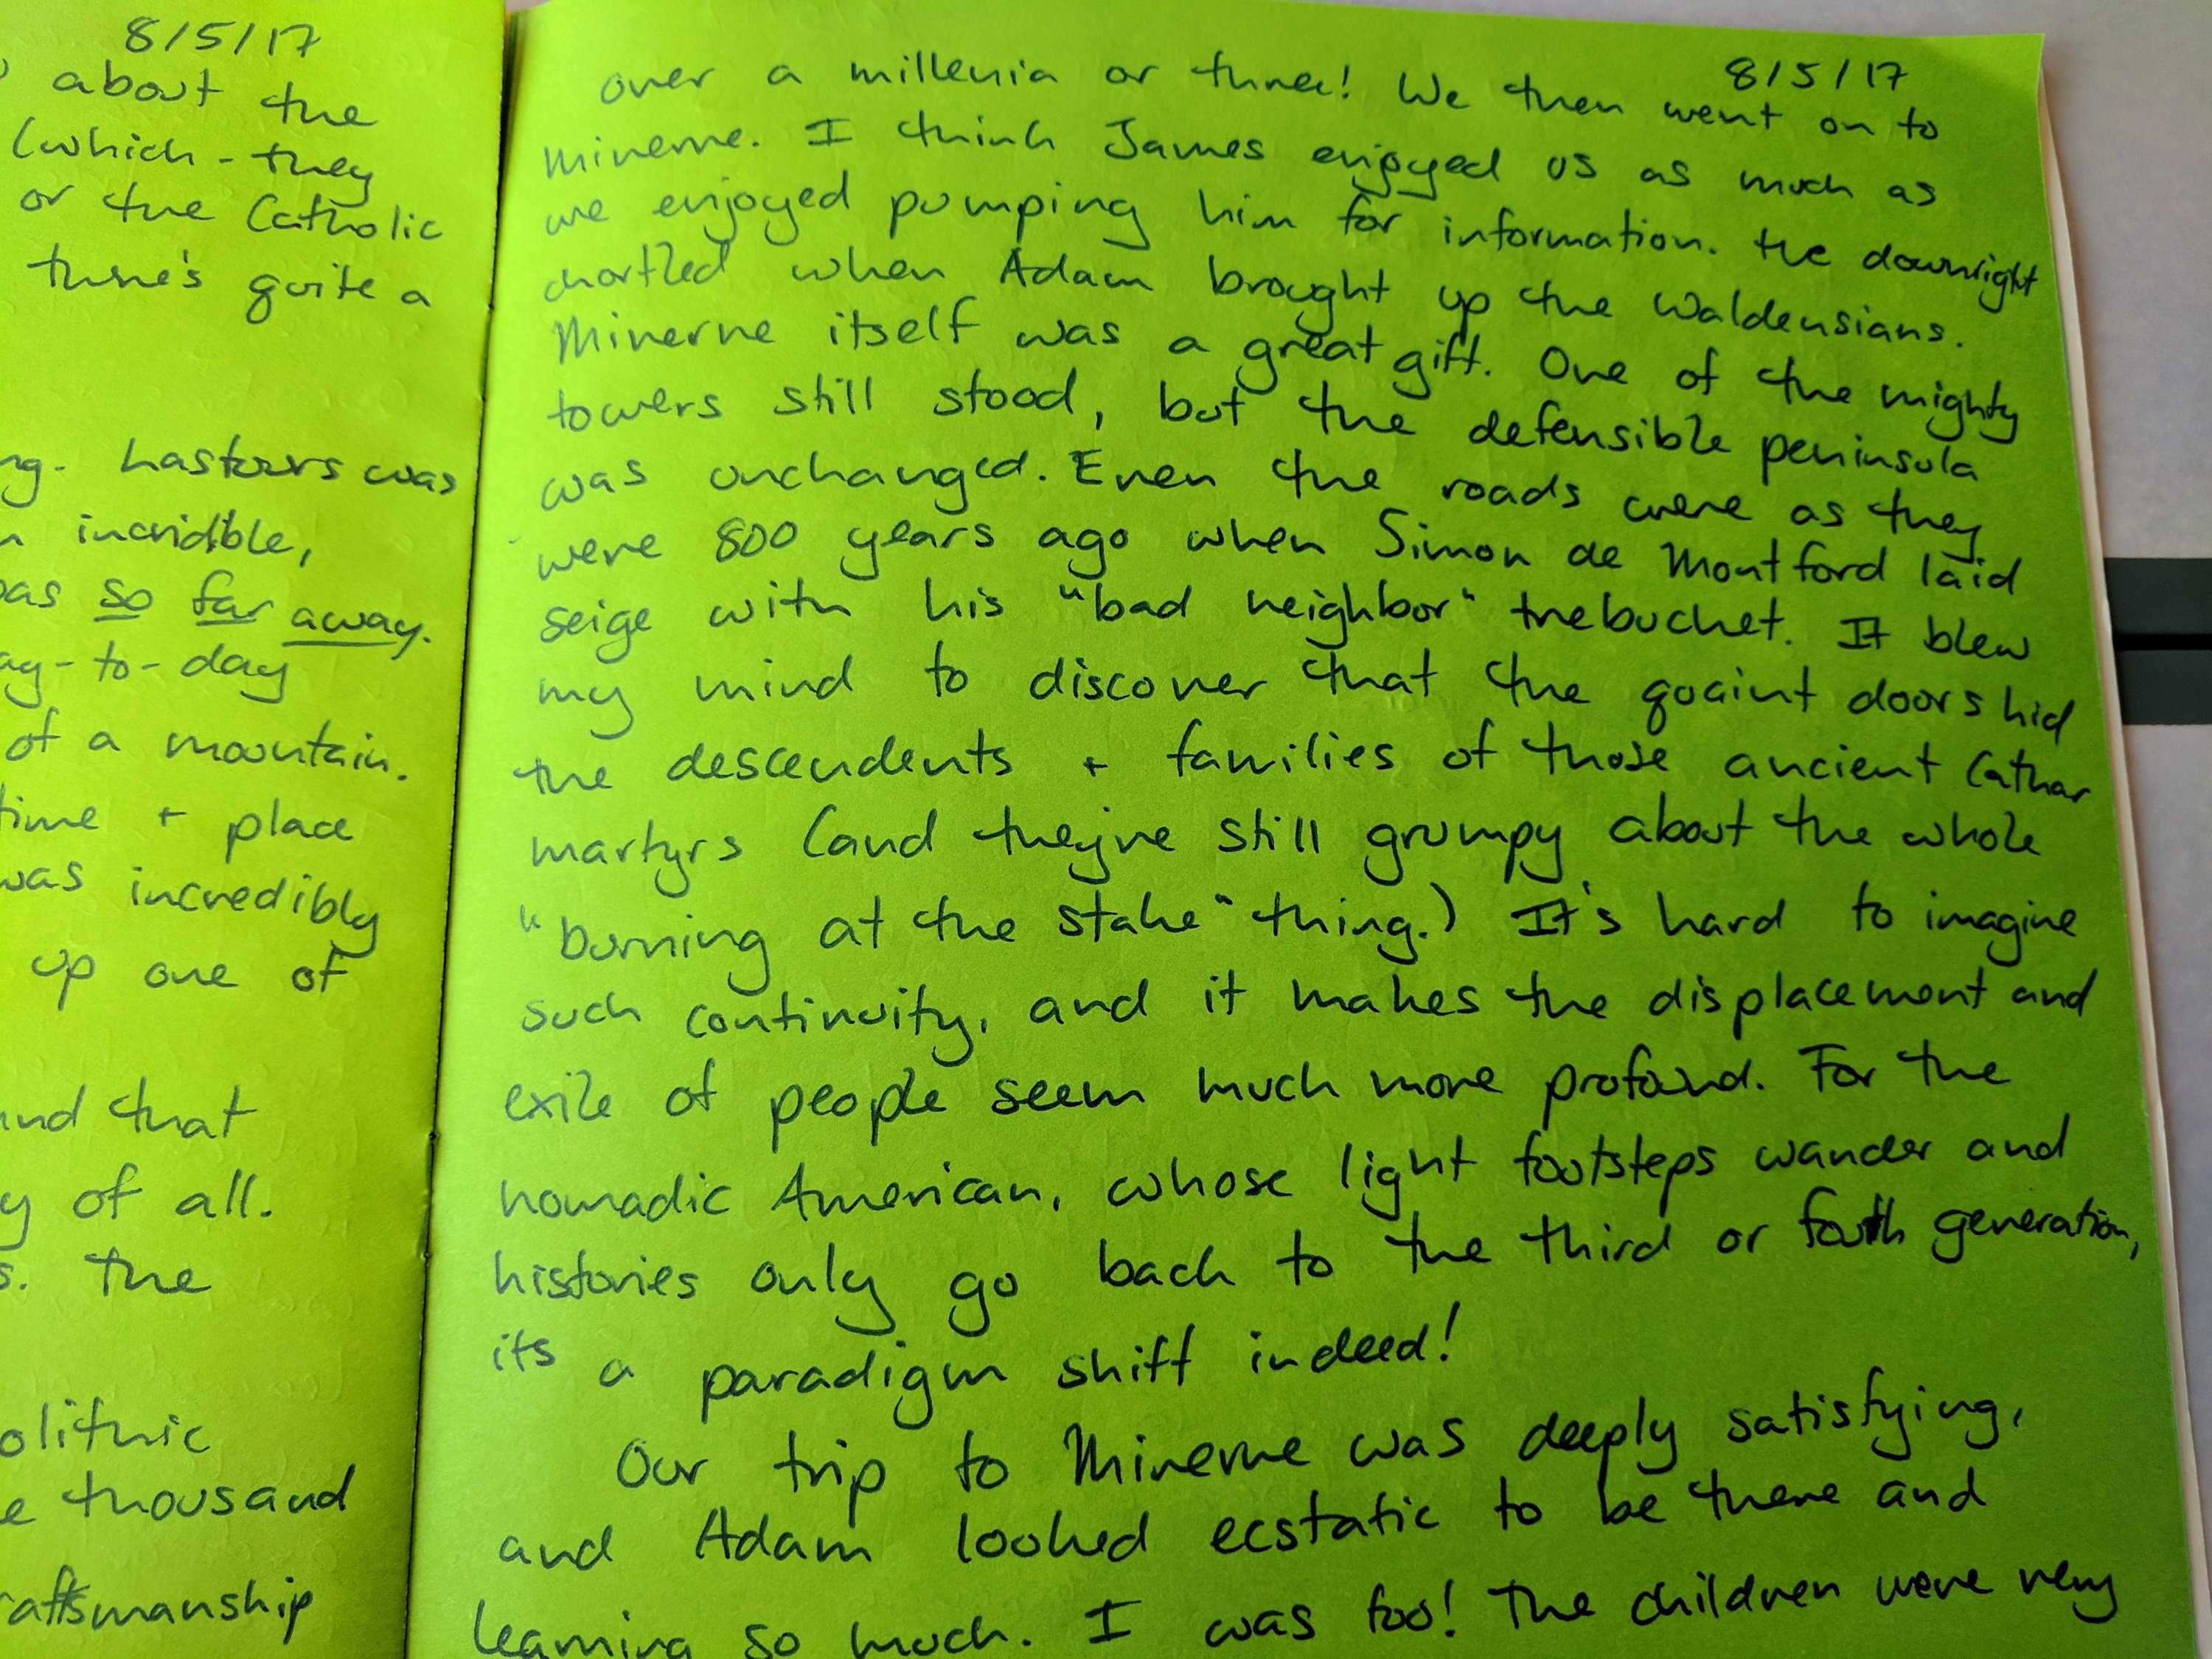 8/5/17
about the
(which - they
or the Catholic
there's quite a
ng. Lastours was
incridible,
was so far away.
ay-to-day
of a mountain.
time + place
was incredibly
up one of
and that
y of all.
s. The
olithic
e thousand
raftsmanship
8/5/17
over a millenia or three! We then went on to
Minerve. I think James enjoyed us as much as
we enjoyed pumping him for information. He downright
chortled when Adam brought up the Waldensians.
Minerve itself was a great gift. One of the mighty
towers still stood, but the defensible peninsula
was unchanged. Even the roads were as they
were 800 years ago when Simon de Montford laid
seige with his "bad neighbor" trebuchet. It blew
my mind to discover that the quaint doors hid
the descendents + families of those ancient Cathar
martyrs (and they're still grumpy about the whole
"burning at the stake" thing.) It's hard to imagine
such continuity, and it makes the displacement and
exile of people seem much more profound. For the
nomadic American, whose light footsteps wander and
histories only go back to the third or fourth generation,
its a paradigm shift indeed!
Our trip to Minerve was deeply satisfying,
and Adam looked ecstatic to be there and
learning so much. I was too! The children were very